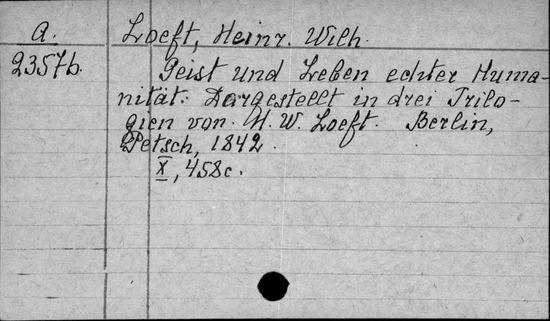 A. Loeft, Heinr. Wilh.
2357b. Geist und Leben echter Huma-
nität. Dargestellt in drei Trilo-
gien von H. W. Loeft. Berlin,
Petsch, 1842.
X, 458 c.